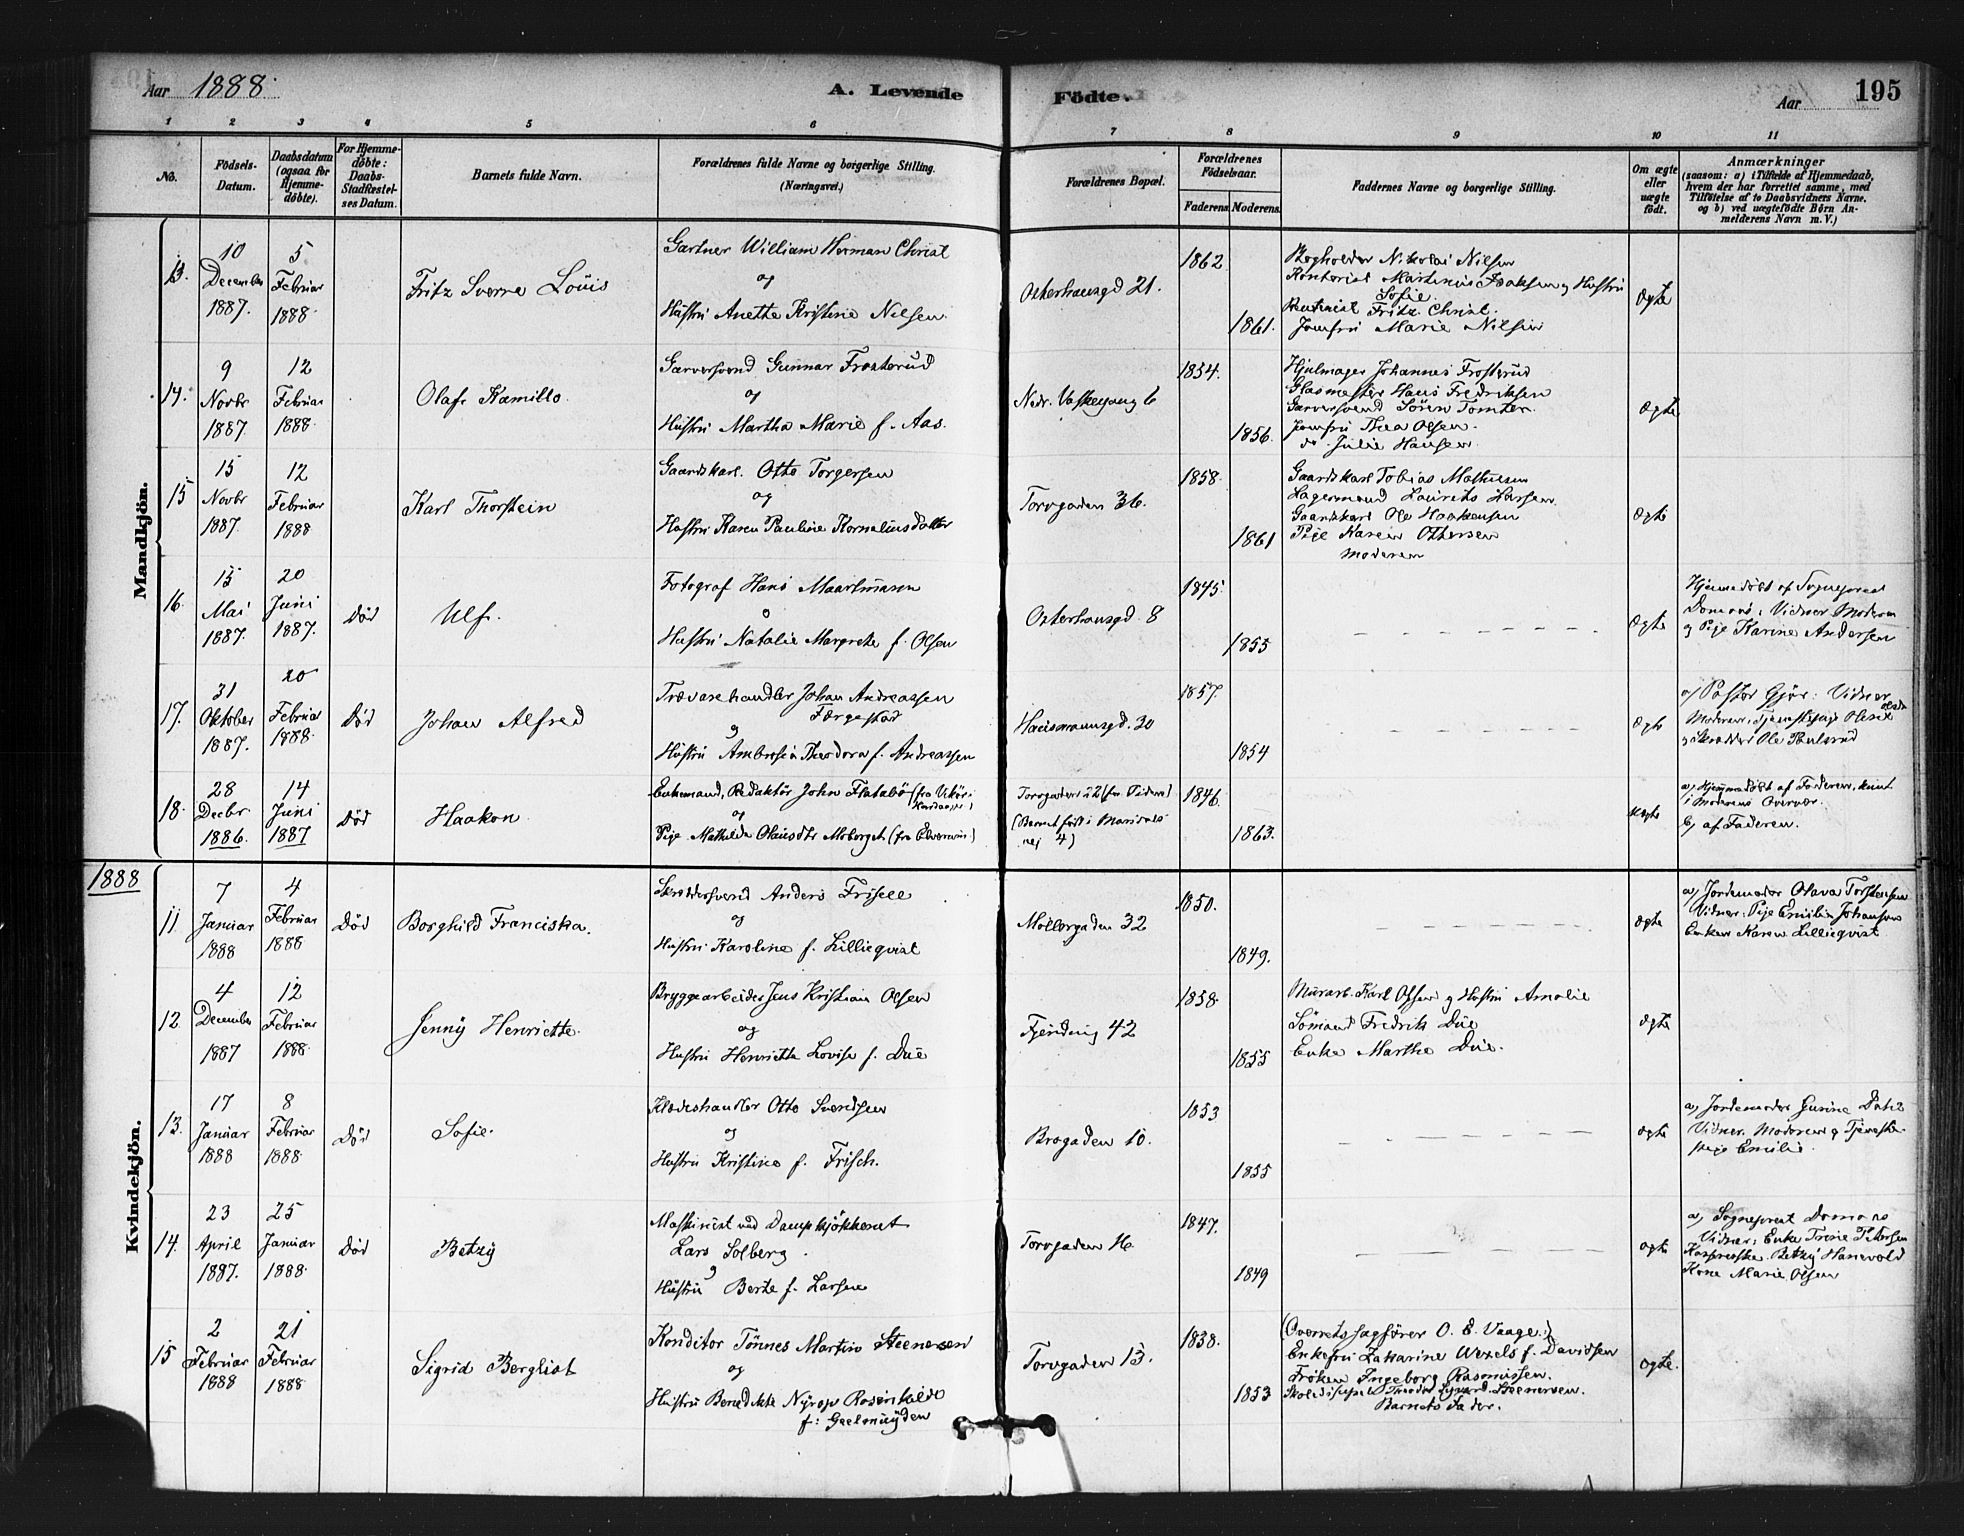 Aar 1888.
A. Levende Födte.
Aar
195
1 2 3 4 5 6 7 8 9 10 11
No.
Födsels-Datum.
Daabsdatum (ogsaa for Hjemme-døbte).
For Hjemme-døbte: Daabs-Stadfæstel-ses Datum.
Barnets fulde Navn.
Forældrenes fulde Navne og borgerlige Stilling. (Næringsvei.)
Forældrenes Bopæl.
Forældrenes Födselsaar.
Faderens. Moderens.
Faddernes Navne og borgerlige Stilling.
Om ægte eller uægte født.
Anmærkninger
(saasom: a) i Tilfælde af Hjemmedaab,
hvem der har forrettet samme, med
Tilføielse af to Daabsvidners Navne,
og b) ved uægtefødte Börn An-
melderens Navn m. V.)
Mandkjön.
13. 10 December 1887. 5 Februar 1888.
Fritz Sverre Louis
Gartner William Herman Christ
og
Hustru Anette Kristine Nilsen.
Osterhausgd 21.
1862
1861.
Bogholder Nikolai Nilsen
Kontorist Martinius Isaksen og Hustru
Sofie.
Rentenist Fritz Christ.
Jomfru Marie Nilsen
Ægte
14. 9 Novbr 1887. 12 Februar 1888.
Olaf Kamillo.
Garversvend Gunnar Frosterud
og
Hustru Martha Marie f. Aas.
Nedr. Vaskegang 6
1854.
1856.
Hjulmager Johannes Frosterud
Glasmester Hans Fredriksen
Garversvend Sören Tomter.
Jomfru Thea Olsen.
do. Julie Hansen.
Ægte
15 15 Novbr 1887. 12 Februar 1888
Karl Thorstein
Gaardskarl. Otto Torgersen
og
Hustru Karen Pauline Korneliusdatter
Torvgaden 36.
1858.
1861
Gaardskarl Tobias Mathisen
Lagermand Laurits Larsen
Gaardskarl Ole Haakensen
Pige Karen Ottersen
Moderen
Ægte
16. 15 Mai 1887. 20 Juni 1887. Död
Ulf.
Fotograf Hans Maartmann
o
Hustru Natalie Margrete f. Olsen
Osterhausgd. 8
1845.
1855
Ægte
Hjemmedöbt af Sognepræst
Domaas; Vidner Moderen
og Pige Karine Andersen
17. 31 Oktober 1887. 20 Februar 1888. Död
Johan Alfred
Trævarehandler Johan Andreassen
Færgestad
og
Hustru Ambrosia Theodora f. Andreassen
Hausmannsgd. 30
1857.
1854
Ægte
a) Pastor Gjör: Vidner
Moderen, Tjenestepige Olsen
og Skrædder Ole Paulsrud
18. 28 Decbr 1886. 14 Juni 1887 Död
Haakon
Enkemand, Redaktör John Flatabö (fra Vikör i
Hardanger)
og
Pige Mathilde Olausdtr Moberget (fra Elverum)
Torvgaden
(Barnet födt i Maridals
vej 4)
1846.
1863.
uægte
a) Hjemmedöbt af Faderen, kun
i Moderens Overvær.
b) af Faderen.
1888
Kvindekjön.
11. 7 Januar 1888 4 Februar 1888 Död
Borghild Franciska.
Skræddersvend Anders Frisell
og
Hustru Karoline f. Lilliequist
Möllergaden 32
1850.
1849.
Ægte
a) Jordemoder Olava Torstensen
Vidner: Pige Emilie Johansen
Enken Karen Lilliequist
12. 4 December 1887 12 Februar 1888.
Jenny Henriette.
Bryggearbeider Jens Kristian Olsen
og
Hustru Henriette Lovise f. Due
Fjerding 42
1858.
1855
Murarb. Karl Olsen og Hustru Amalie
Sömand Fredrik Due
Enke Marthe Due.
Ægte
13. 17 Januar 1888 8 Februar 1888. Död
Sofie.
Klædeshandler Otto Svendsen
og
Hustru Kristine f. Frisch.
Brogaden 10.
1853
1855
Ægte
a) Jordemoder Gusine Dahl
Vidner. Moderen og Tjeneste-
pige Emilie.
14. 23 April 1887. 25 Januar 1888. Död
Betzy
Maskinist ved Dampkjökkenet
Lars Solberg.
og
Hustru Berte f. Larsen
Torvgaden
1847.
1849
Ægte
a) Sogneprest Domaas
Vidner: Enke Trine Petersen
Betzy Hanevold
Kone Marie Olsen
15 2 Februar 1888 21 Februar 1888
Sigrid Bergliot
Konditor Tönnes Martin Steenersen
og
Hustru Benedikte Nyrop Rosenkilde
f: Geelmuyden
Torvgaden 13.
1838.
1853
(Overretssagförer O. E. Vaage.)
Enkefru Zakarine Wexels f. Davidsen
Fröken Ingeborg Rasmussen.
Skoledisipel Sigurd Steenersen.
Barnets Fader.
Ægte.